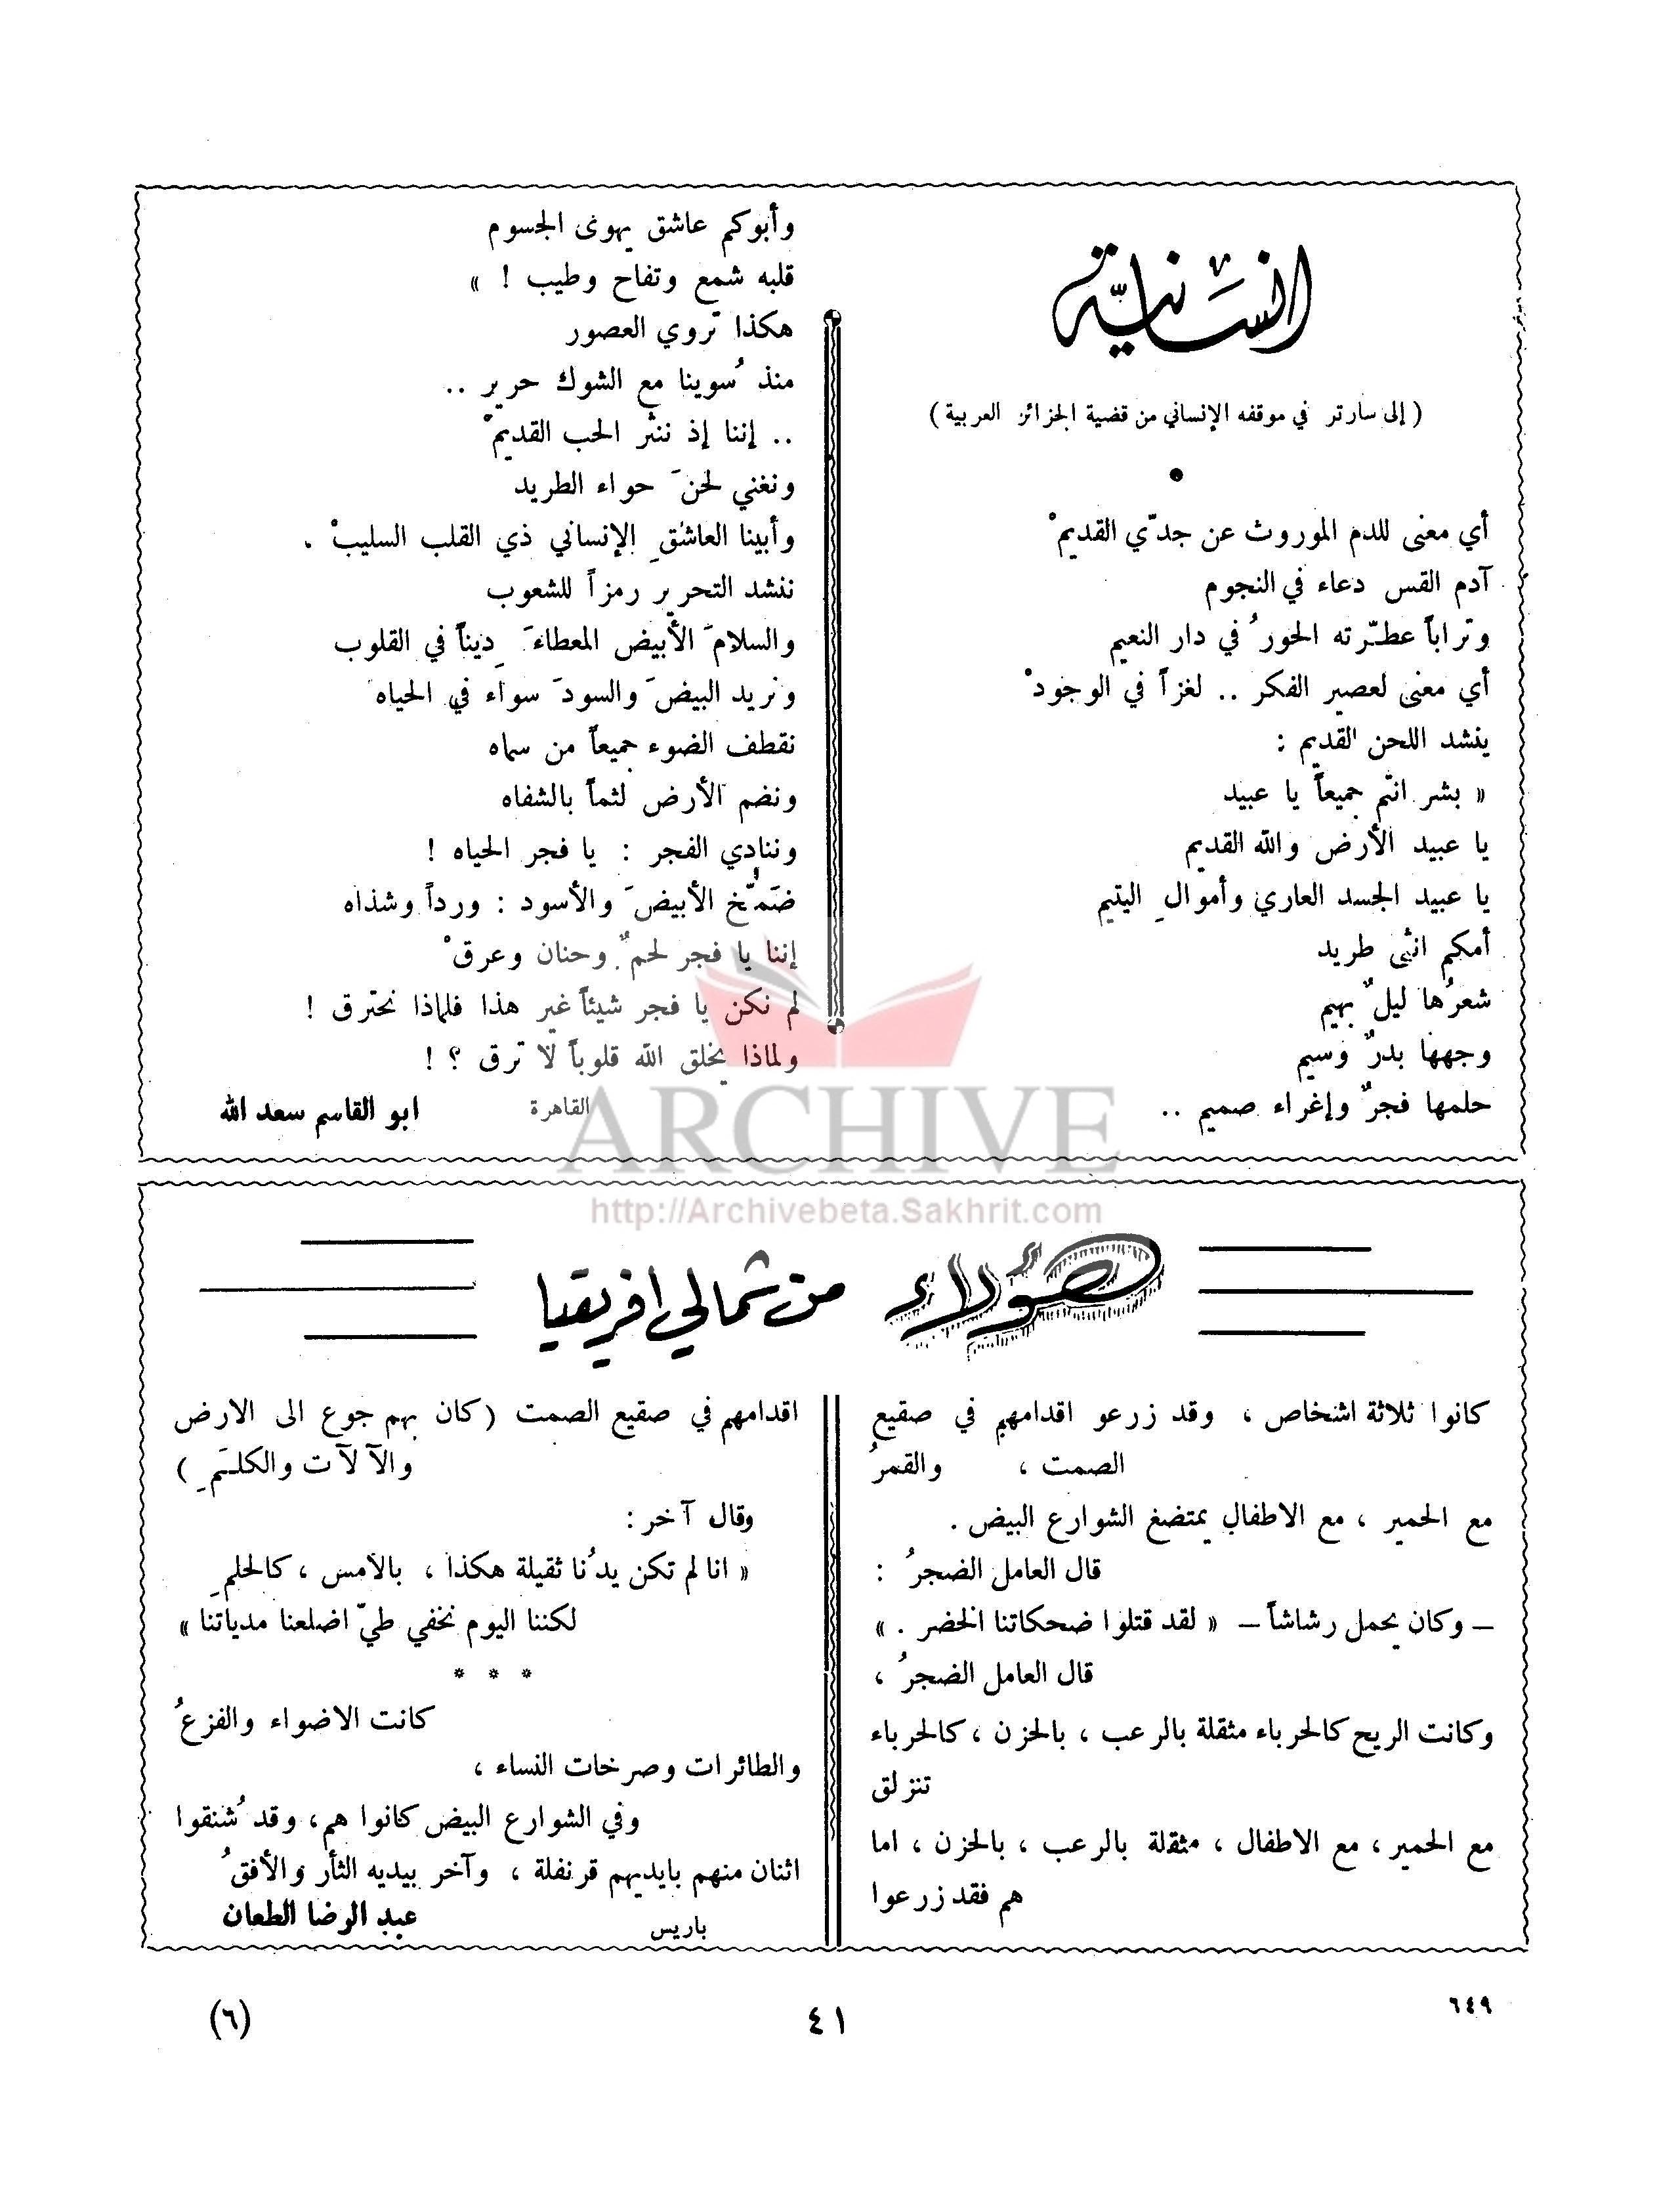 انسانية
( إلى سارتر في موقفه الإنساني من قضية الجزائر العربية )
أي معنى للدم الموروث عن جدّي القديمْ
آدم القس دعاء في النجوم
وتراباً عطّرته الحورُ في دار النعيم
أي معنى لعصير الفكر .. لغزاً في الوجودْ
ينشد اللحن القديم :
« بشر انتم جميعاً يا عبيد
يا عبيد الأرض والله القديم
يا عبيد الجسد العاري وأموالِ اليتيم
أمكم انثى طريد
شعرُها ليلٌ بهيم
وجهها بدرٌ وسيم
حلمها فجرٌ وإغراء صميم ..
وأبوكم عاشق يهوى الجسوم
قلبه شمع وتفاح وطيب ! »
هكذا تروي العصور
منذ سُوينا مع الشوك حرير ..
.. إننا إذ ننثر الحب القديمْ
ونغني لحنَ حواء الطريد
وأبينا العاشقِ الإنساني ذي القلب السليبْ .
ننشد التحرير رمزاً للشعوب
والسلامَ الأبيض المعطاءَ دِيناً في القلوب
ونريد البيضَ والسودَ سواء في الحياه
نقطف الضوء جميعاً من سماه
ونضم الأرض لثماً بالشفاه
وننادي الفجر : يا فجر الحياه !
ضَمِّخ الأبيضَ والأسود : ورداً وشذاه
إننا يا فجر لحمٌ وحنان وعرقْ
لم نكن يا فجر شيئاً غير هذا فلماذا نحترق !
ولماذا يخلق الله قلوباً لا ترق ؟ !
القاهرة ابو القاسم سعد الله
ARCHIVE
http://Archivebeta.Sakhrit.com
هؤلاء من شمالي افريقيا
كانوا ثلاثة اشخاص ، وقد زرعو اقدامهم في صقيع
الصمت ، والقمرُ
مع الحمير ، مع الاطفال يمتضغ الشوارع البيض .
قال العامل الضجرُ :
– وكان يحمل رشاشاً – « لقد قتلوا ضحكاتنا الخضر . »
قال العامل الضجرُ ،
وكانت الريح كالحرباء مثقلة بالرعب ، بالحزن ، كالحرباء
تنزلق
مع الحمير ، مع الاطفال ، مثقلة بالرعب ، بالحزن ، اما
هم فقد زرعوا
اقدامهم في صقيع الصمت (كان بهم جوع الى الارض
والآلات والكلَمِ )
وقال آخر :
« انا لم تكن يدُنا ثقيلة هكذا ، بالامس ، كالحلمِ
لكننا اليوم نخفي طيّ اضلعنا مدياتنا »
* * *
كانت الاضواء والفزعُ
والطائرات وصرخات النساء ،
وفي الشوارع البيض كانوا هم ، وقد شُنقوا
اثنان منهم بايديهم قرنفلة ، وآخر بيديه الثأر والأفقُ
باريس عبد الرضا الطعان
٦٤٩
٤١
(٦)